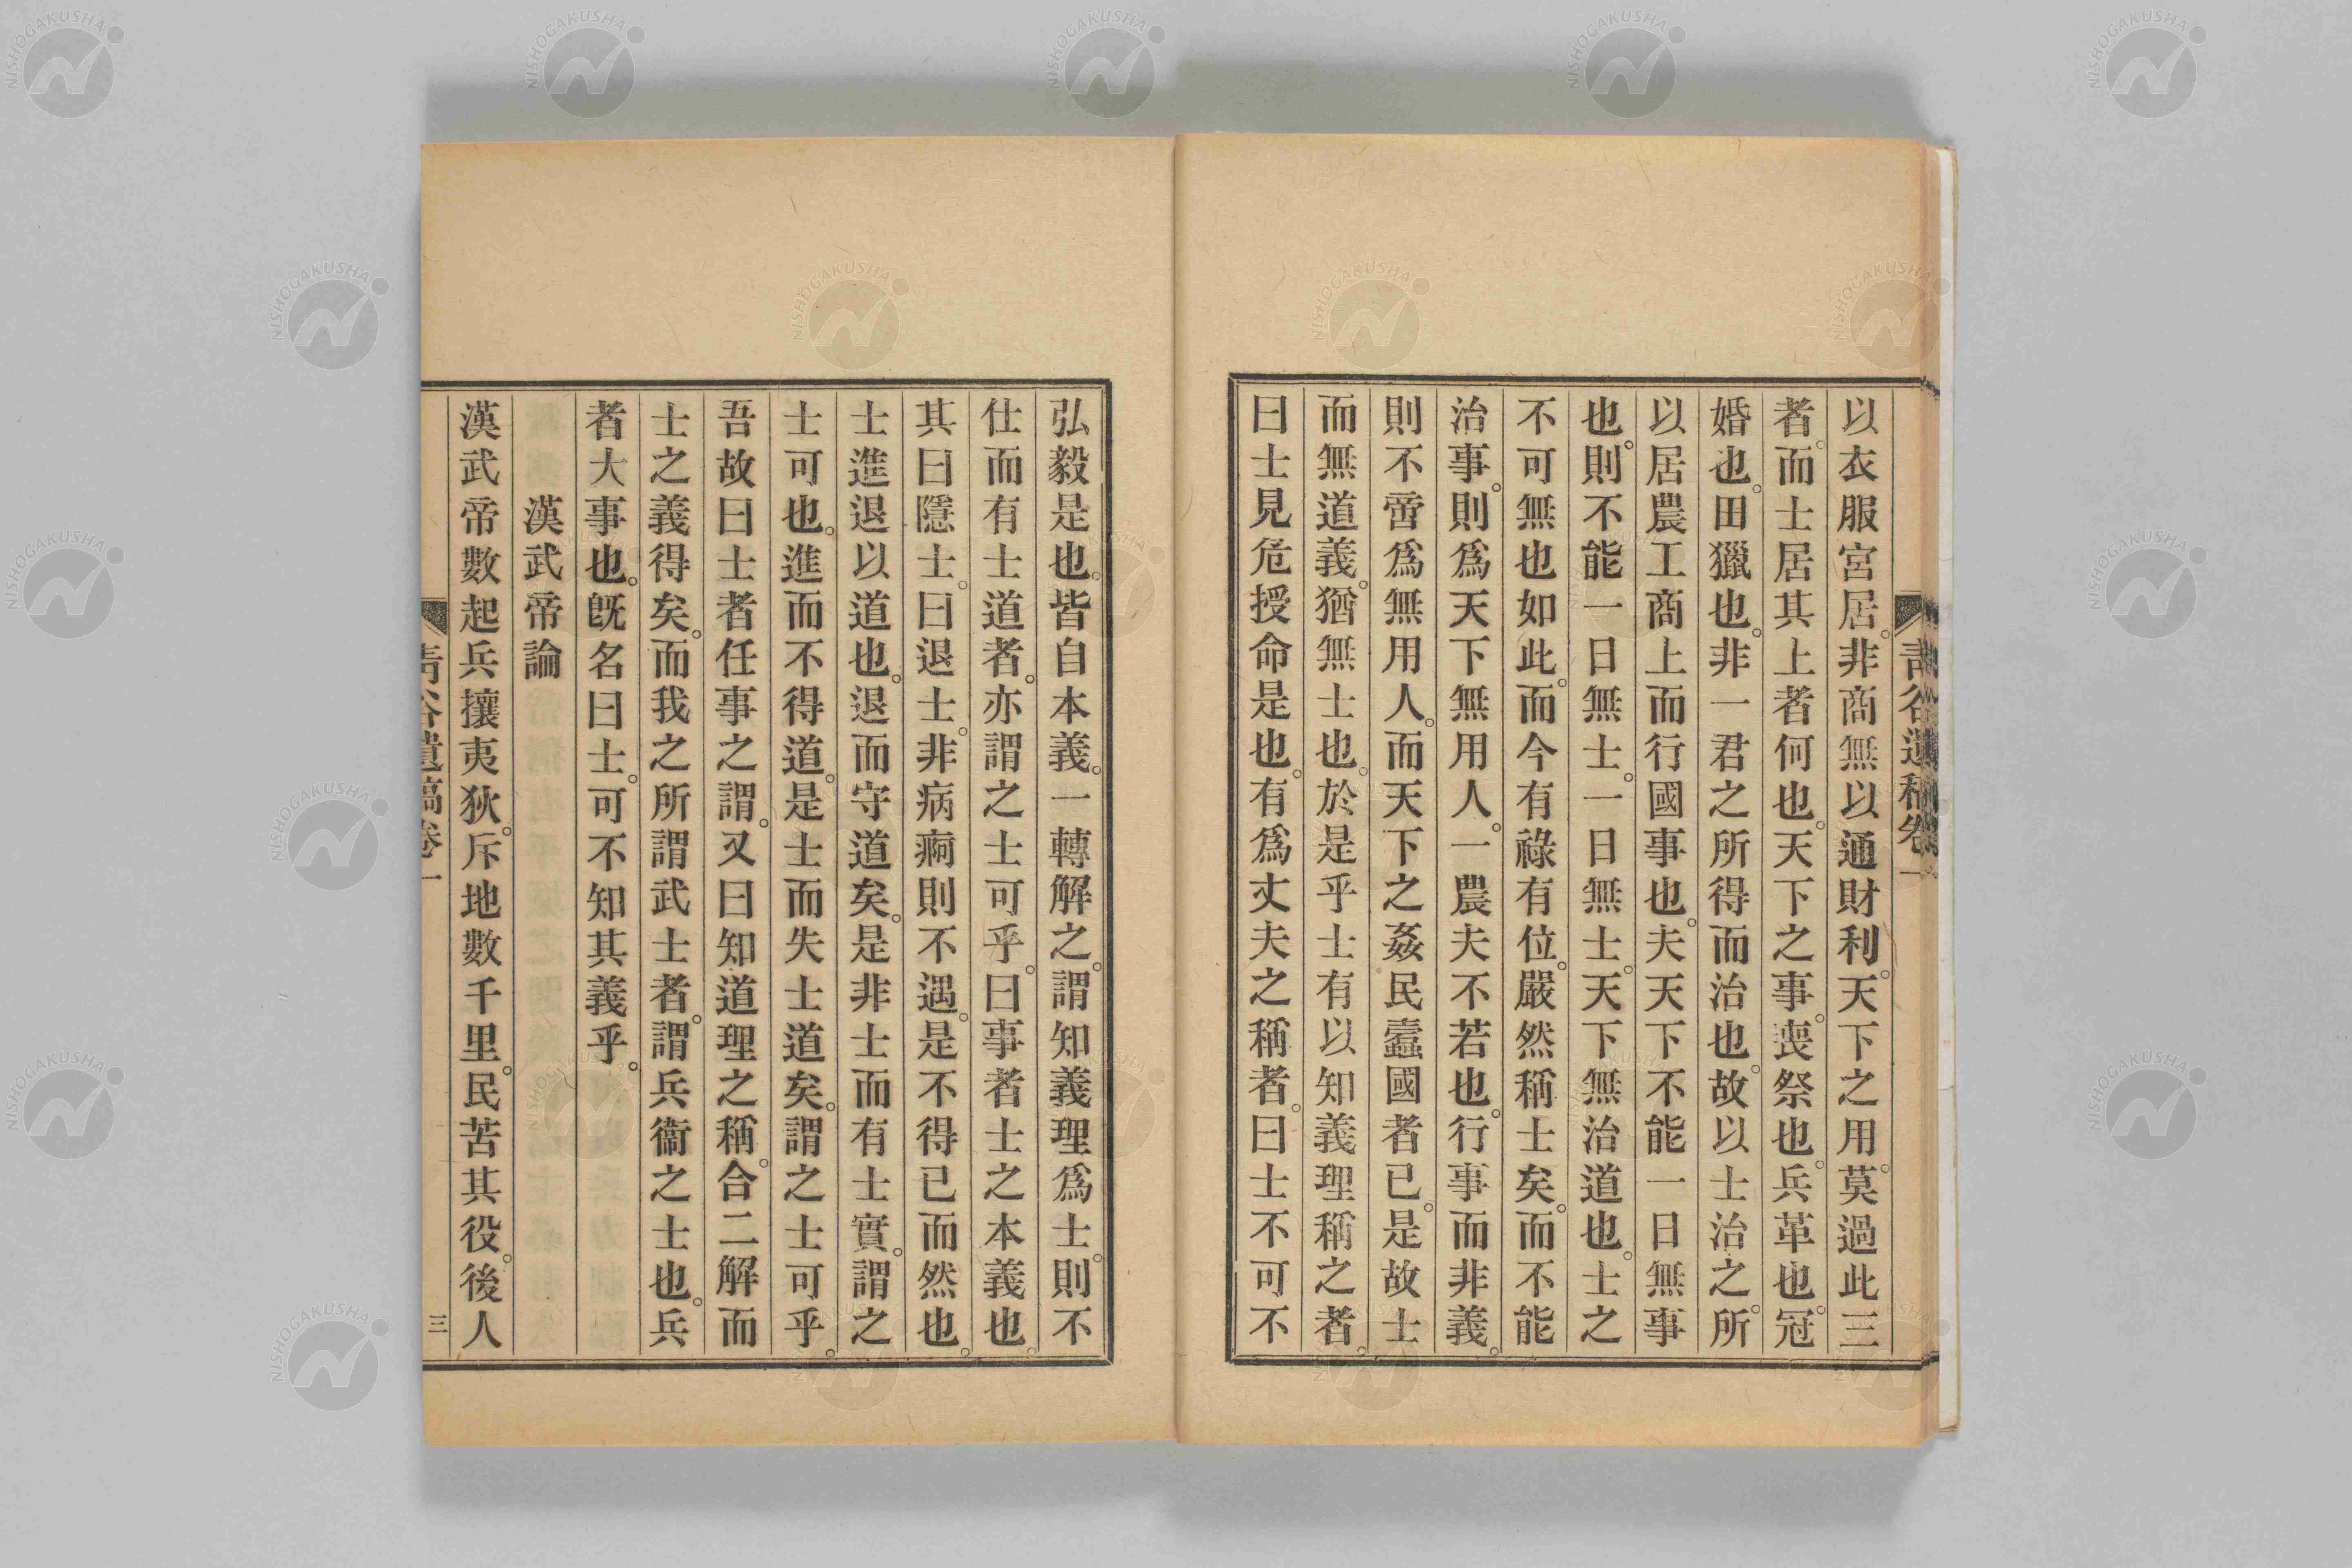 靑谷遺稿卷一
以衣服宮居。非商無以通財利。天下之用。莫過此三
者。而士居其上者何也。天下之事。喪祭也。兵革也。冠
婚也。田獵也。非一君之所得而治也。故以士治之。所
以居農工商上而行國事也。夫天下不能一日無事
也。則不能一日無士。一日無士。天下無治道也。士之
不可無也如此。而今有祿有位。嚴然稱士矣。而不能
治事。則爲天下無用人。一農夫不若也。行事而非義。
則不啻爲無用人。而天下之姦民蠹國者已。是故士
而無道義。猶無士也。於是乎士有以知義理稱之者。
曰士見危授命是也。有爲丈夫之稱者。曰士不可不
弘毅是也。皆自本義。一轉解之。謂知義理爲士。則不
仕而有士道者。亦謂之士可乎。曰事者士之本義也。
其曰隱士。曰退士。非病痾則不遇。是不得已而然也。
士進退以道也。退而守道矣。是非士而有士實。謂之
士可也。進而不得道。是士而失士道矣。謂之士可乎。
吾故曰士者任事之謂。又曰知道理之稱。合二解而
士之義得矣。而我之所謂武士者。謂兵衞之士也。兵
者大事也。旣名曰士。可不知其義乎。
漢武帝論
漢武帝數起兵攘夷狄。斥地數千里。民苦其役。後人
靑谷遺稿卷一
三
NISHOGAKUSHA